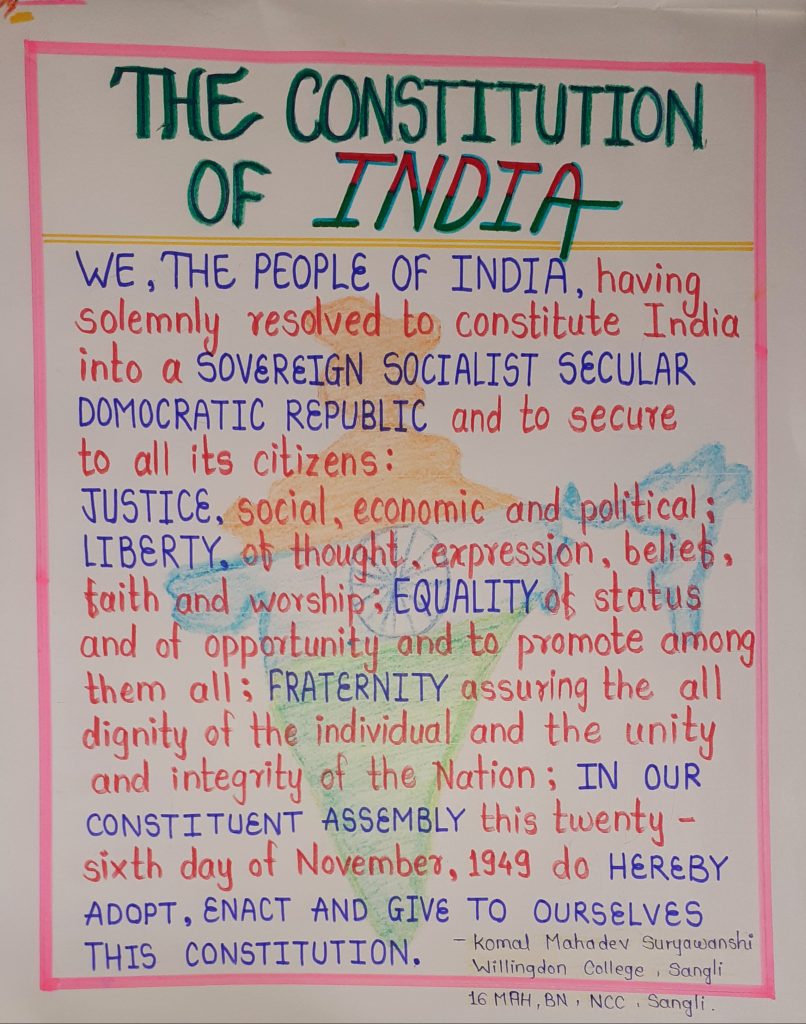 THE CONSTITUTION
OF INDIA
WE, THE PEOPLE OF INDIA, having
solemnly resolved to constitute India
into a SOVEREIGN SOCIALIST SECULAR
DOMOCRATIC REPUBLIC and to secure
to all its citizens:
JUSTICE, social, economic and political;
LIBERTY, of thought, expression, belief,
faith and worship; EQUALITY of status
and of opportunity and to promote among
them all; FRATERNITY assuring the all
dignity of the individual and the unity
and integrity of the Nation; IN OUR
CONSTITUENT ASSEMBLY this twenty-
sixth day of November, 1949 do HEREBY
ADOPT, ENACT AND GIVE TO OURSELVES
THIS CONSTITUTION.
- Komal Mahadev Suryawanshi
Willingdon College, Sangli
16 MAH, BN, NCC, Sangli.